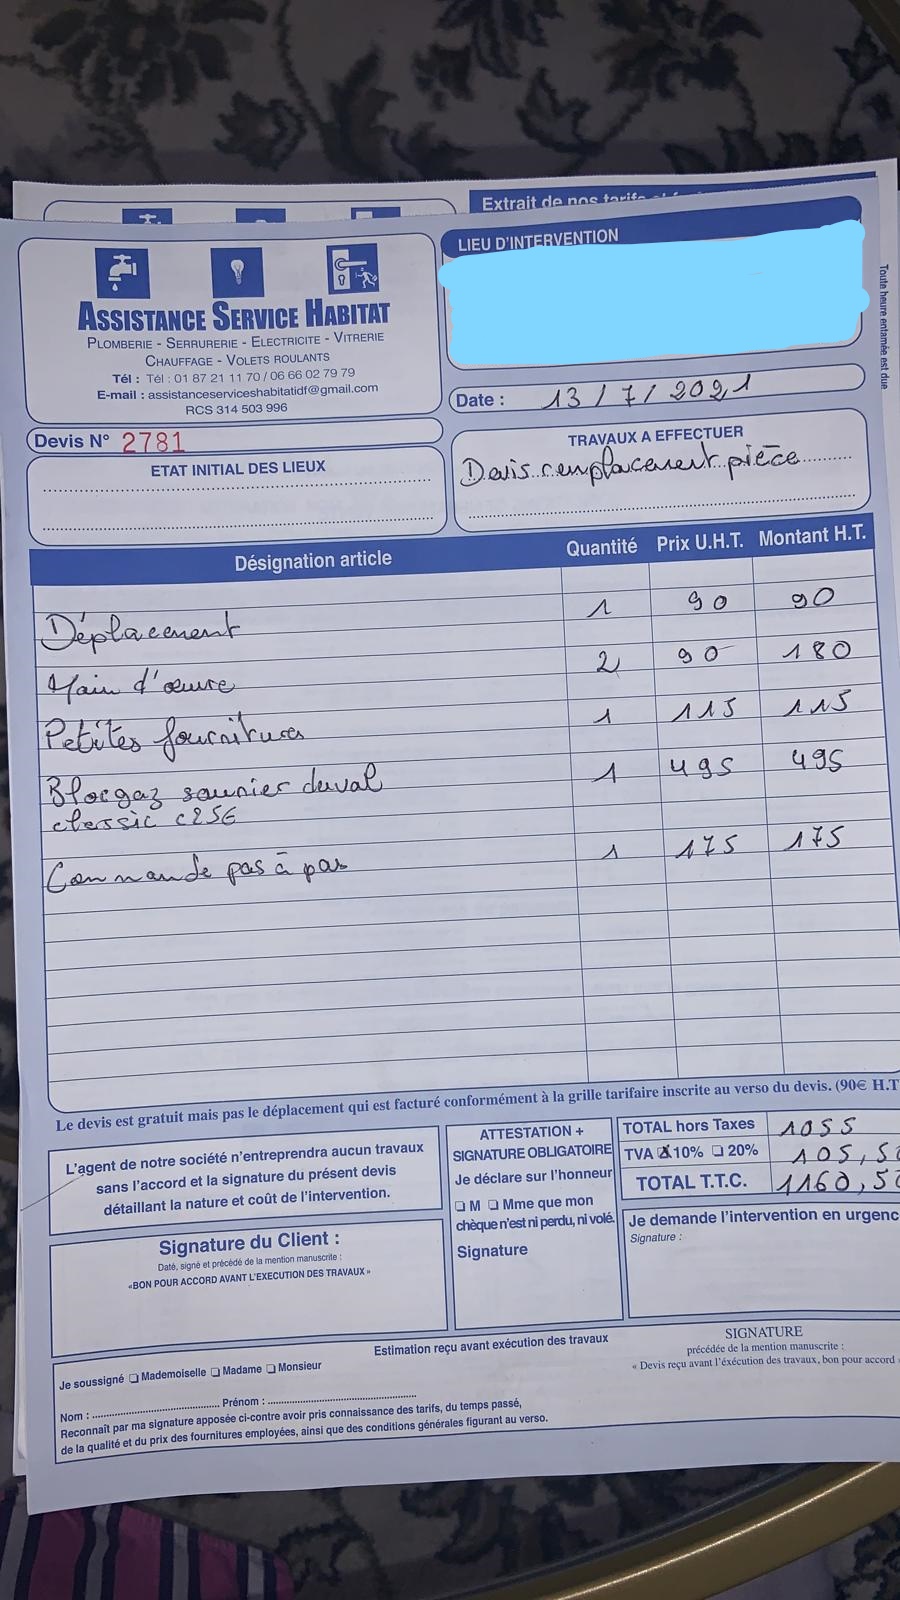 Extrait de nos tarifs
LIEU D'INTERVENTION
ASSISTANCE SERVICE HABITAT
PLOMBERIE - SERRURERIE - ELECTRICITE - VITRERIE
CHAUFFAGE - VOLETS ROULANTS
Tél : Tél : 01 87 21 11 70 / 06 66 02 79 79
E-mail : assistanceserviceshabitatidf@gmail.com
RCS 314 503 996
Toute heure entamée est due
Date : 13/7/2021
Devis N° 2781
ETAT INITIAL DES LIEUX
TRAVAUX A EFFECTUER
Devis remplacement pièce
Désignation article Quantité Prix U.H.T. Montant H.T.
Déplacement 1 90 90
Main d'œuvre 2 90 180
Petites fournitures 1 115 115
Blocgaz saunier duval 1 495 495
classic c25E
Commande pas à pas 1 175 175
Le devis est gratuit mais pas le déplacement qui est facturé conformément à la grille tarifaire inscrite au verso du devis. (90€ H.T
L'agent de notre société n'entreprendra aucun travaux
sans l'accord et la signature du présent devis
détaillant la nature et coût de l'intervention.
ATTESTATION +
SIGNATURE OBLIGATOIRE
Je déclare sur l'honneur
M Mme que mon
chèque n'est ni perdu, ni volé.
Signature
TOTAL hors Taxes 1055
TVA 10% 20% 105,50
TOTAL T.T.C. 1160,50
Signature du Client :
Daté, signé et précédé de la mention manuscrite :
«BON POUR ACCORD AVANT L'EXECUTION DES TRAVAUX»
Je demande l'intervention en urgenc
Signature :
Estimation reçu avant exécution des travaux
SIGNATURE
précédée de la mention manuscrite :
« Devis reçu avant l'éxécution des travaux, bon pour accord »
Je soussigné Mademoiselle Madame Monsieur
Nom : Prénom :
Reconnaît par ma signature apposée ci-contre avoir pris connaissance des tarifs, du temps passé,
de la qualité et du prix des fournitures employées, ainsi que des conditions générales figurant au verso.